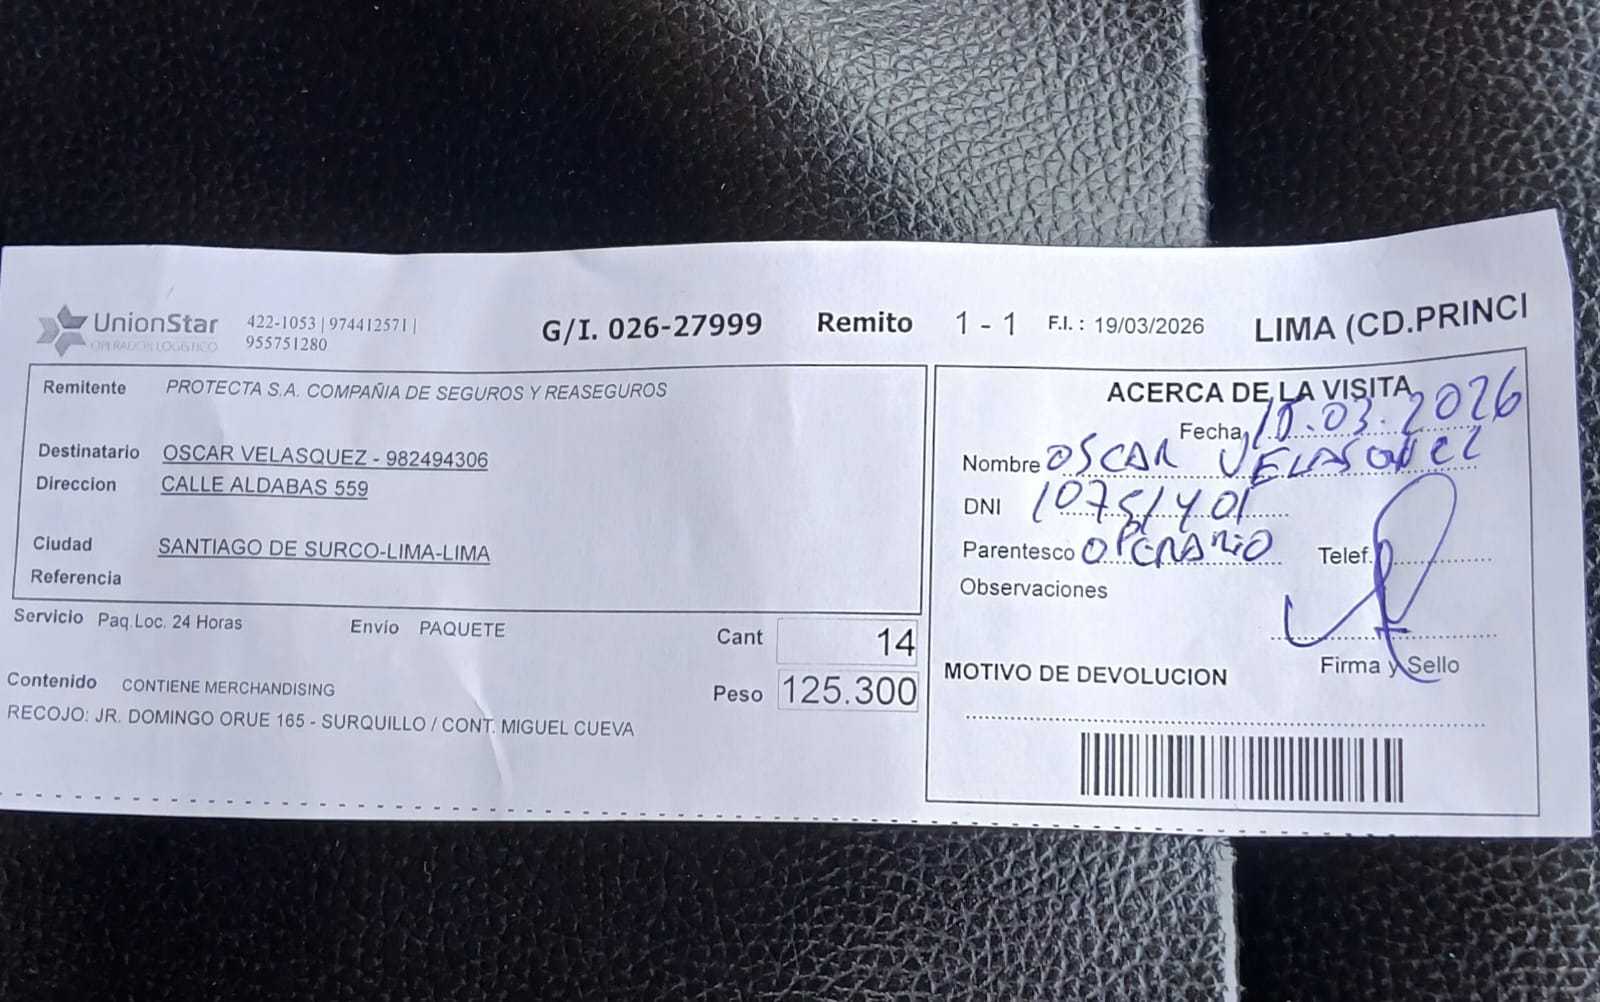 UnionStar
OPERADOR LOGÍSTICO
422-1053 | 974412571 |
955751280
G/I. 026-27999
Remito 1 - 1
F.I. : 19/03/2026
LIMA (CD.PRINCI
Remitente PROTECTA S.A. COMPAÑIA DE SEGUROS Y REASEGUROS
Destinatario OSCAR VELASQUEZ - 982494306
Direccion CALLE ALDABAS 559
Ciudad SANTIAGO DE SURCO-LIMA-LIMA
Referencia
Servicio Paq.Loc. 24 Horas
Envio PAQUETE
Cant 14
Contenido CONTIENE MERCHANDISING
Peso 125.300
RECOJO: JR. DOMINGO ORUE 165 - SURQUILLO / CONT. MIGUEL CUEVA
ACERCA DE LA VISITA
Fecha
Nombre OSCAR VELASQUEZ
DNI
Parentesco OPERARIO
Telef.
Observaciones
Firma y Sello
MOTIVO DE DEVOLUCION